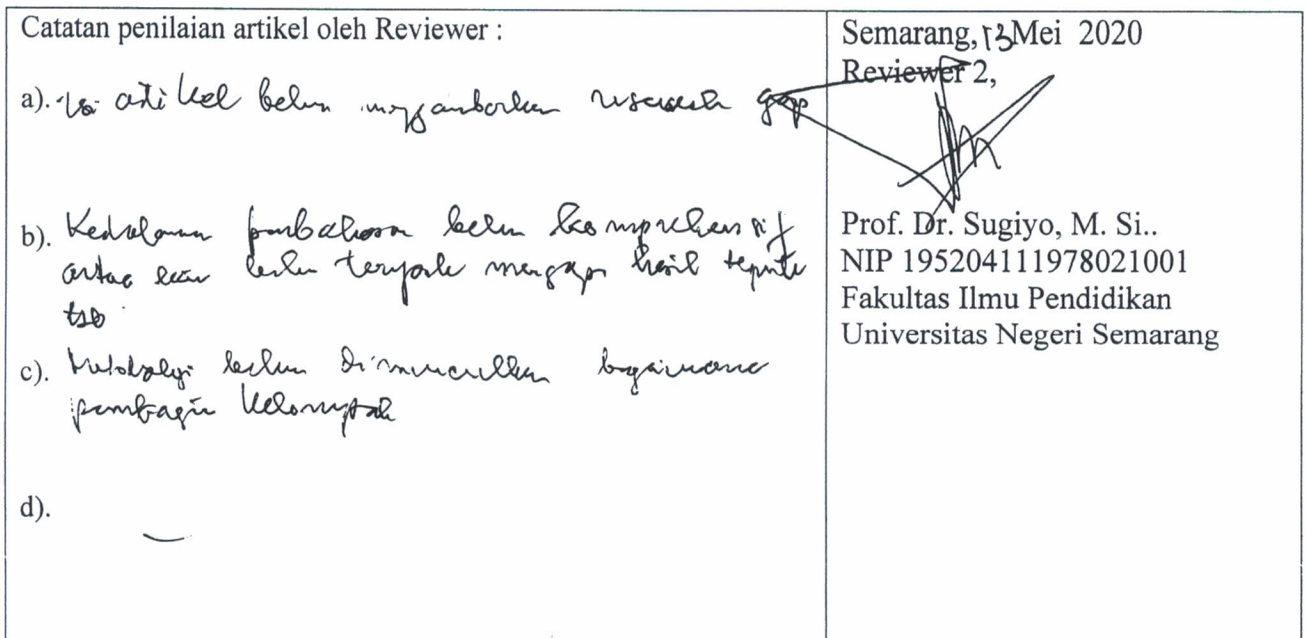 Catatan penilaian artikel oleh Reviewer :
a). Isi artikel belum menggambarkan research gap
b). Kedalaman pembahasan belum komprehensif
antara lain belum terjawab mengapa hasil seperti
tsb
c). Metodologi belum dimunculkan bagaimana
pembagian kelompok
d). -
Semarang, 13 Mei 2020
Reviewer 2,
Prof. Dr. Sugiyo, M. Si..
NIP 195204111978021001
Fakultas Ilmu Pendidikan
Universitas Negeri Semarang